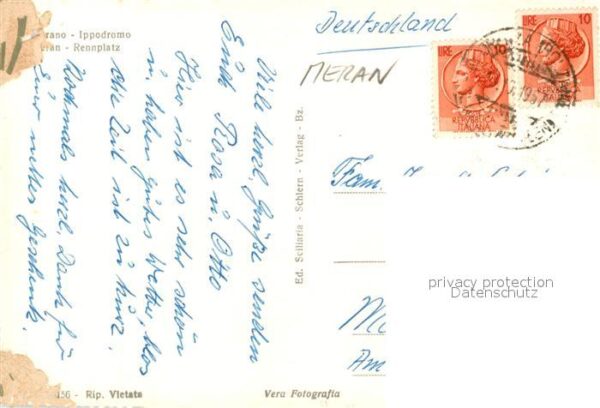 rano - Ippodromo
eran - Rennplatz
Viele herzl. Grüße senden
Euch Rosa u. Otto
Hier ist es sehr schön
u. haben gutes Wetter, blos
die Zeit ist zu kurz.
Nochmals herzl. Dank für
Euer nettes Geschenk.
156 - Rip. Vietata
Vera Fotografia
Ed. Sciliaria - Schlern - Verlag - Bz.
Deutschland
MERAN
LIRE
REPVBBLICA
ITALIANA
LIRE 10
REPVBBLICA
ITALIANA
1957
Fam.
M
Am
privacy protection
Datenschutz